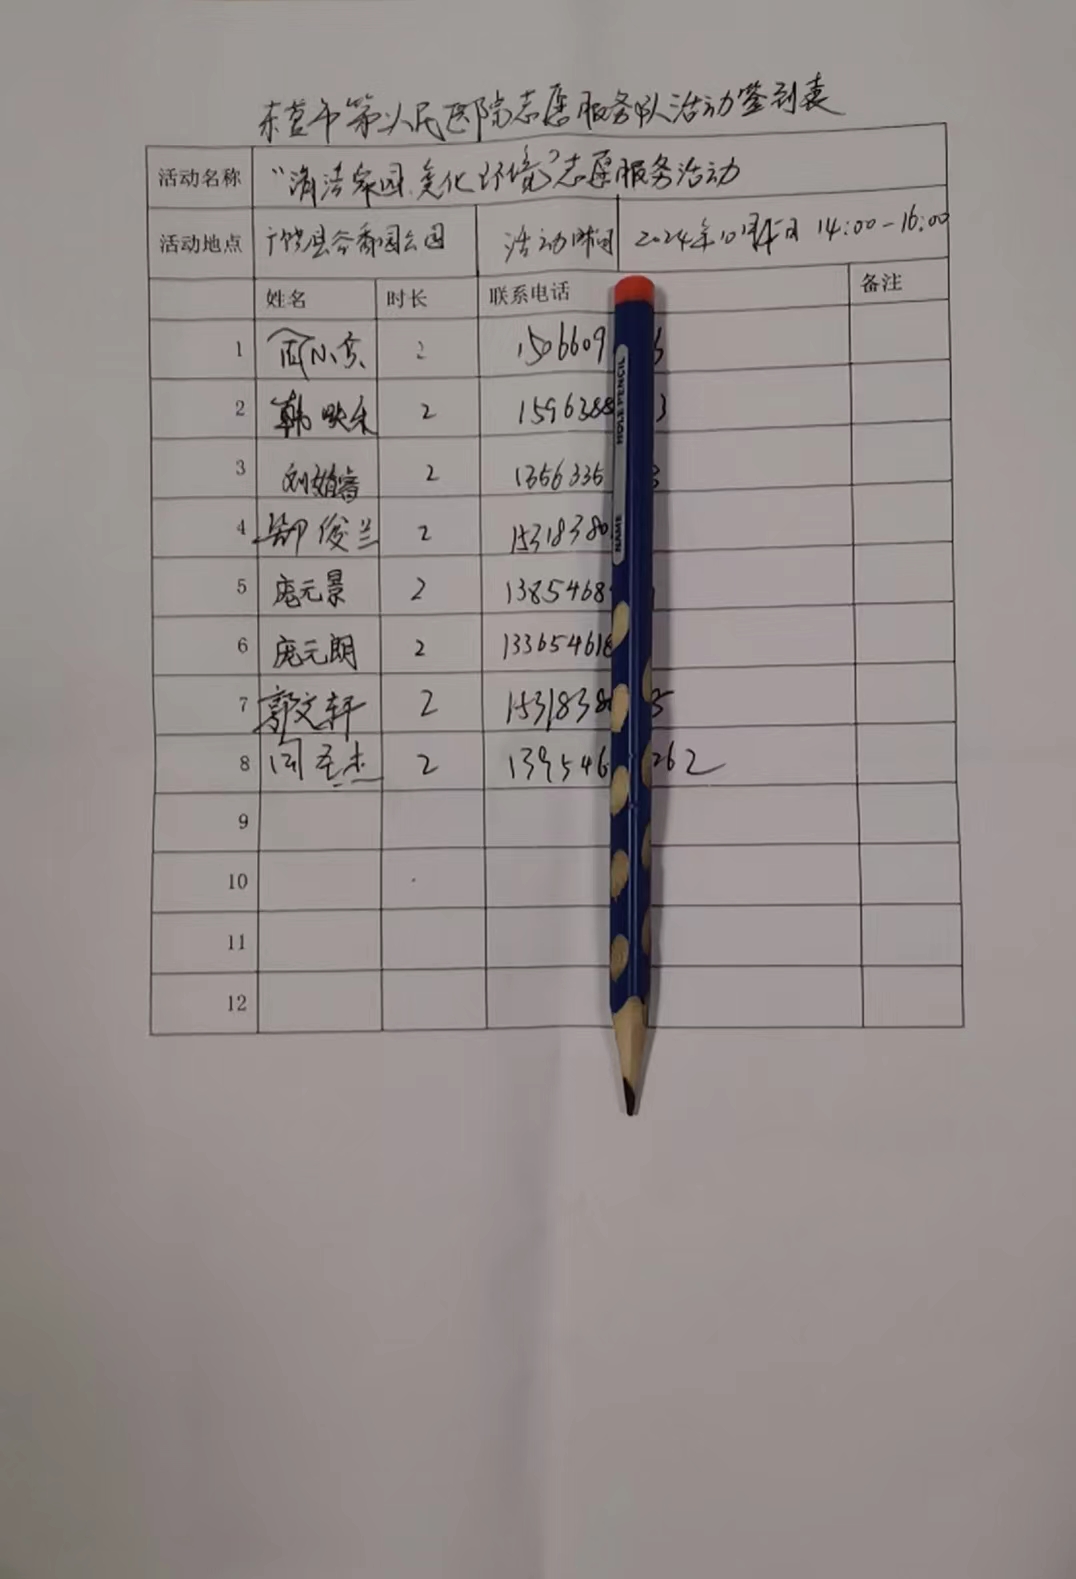 东营市第二人民医院志愿服务队活动签到表
活动名称 "清洁家园,美化环境"志愿服务活动
活动地点 广饶县谷香园公园 活动时间 2024年10月 日 14:00-16:00
姓名 时长 联系电话 备注
1 小 2 1506609
2 韩 2 1596388 3
3 刘婧睿 2 1356335 3
4 郭俊兰 2 15318380
5 庞元景 2 1385468
6 庞元朗 2 133654618
7 郭文轩 2 1531838 5
8 闫圣杰 2 139546 262
9
10
11
12
HOLE PENCIL
NAME